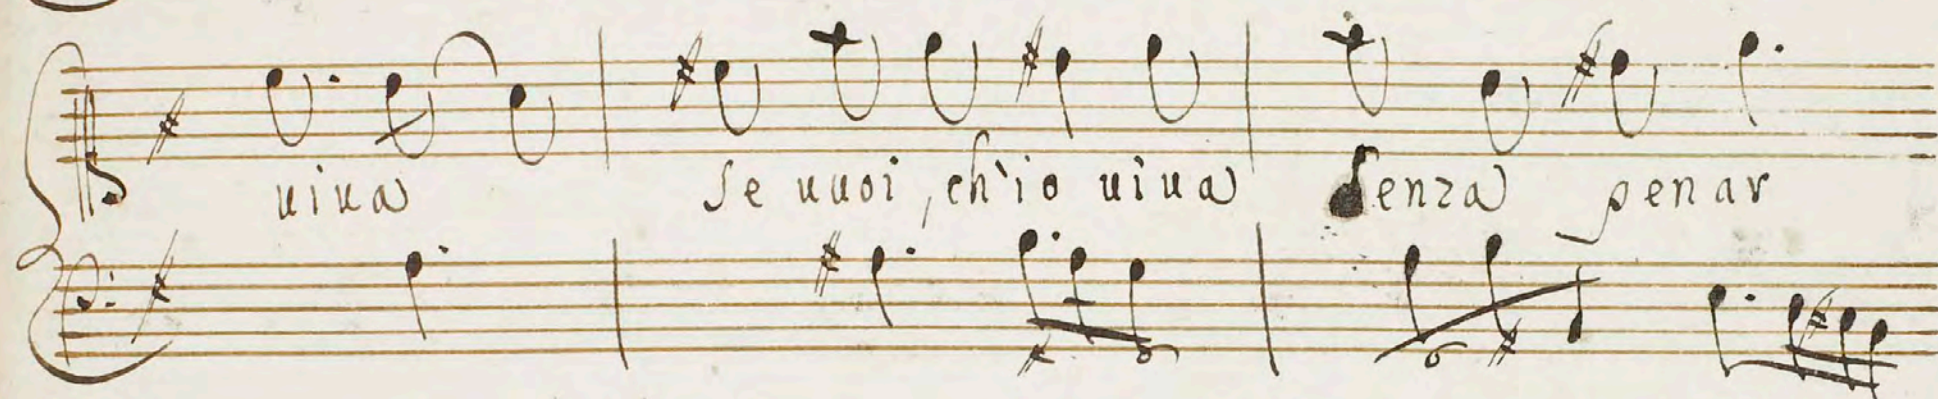 uiua se uuoi, ch'io uiua senza penar